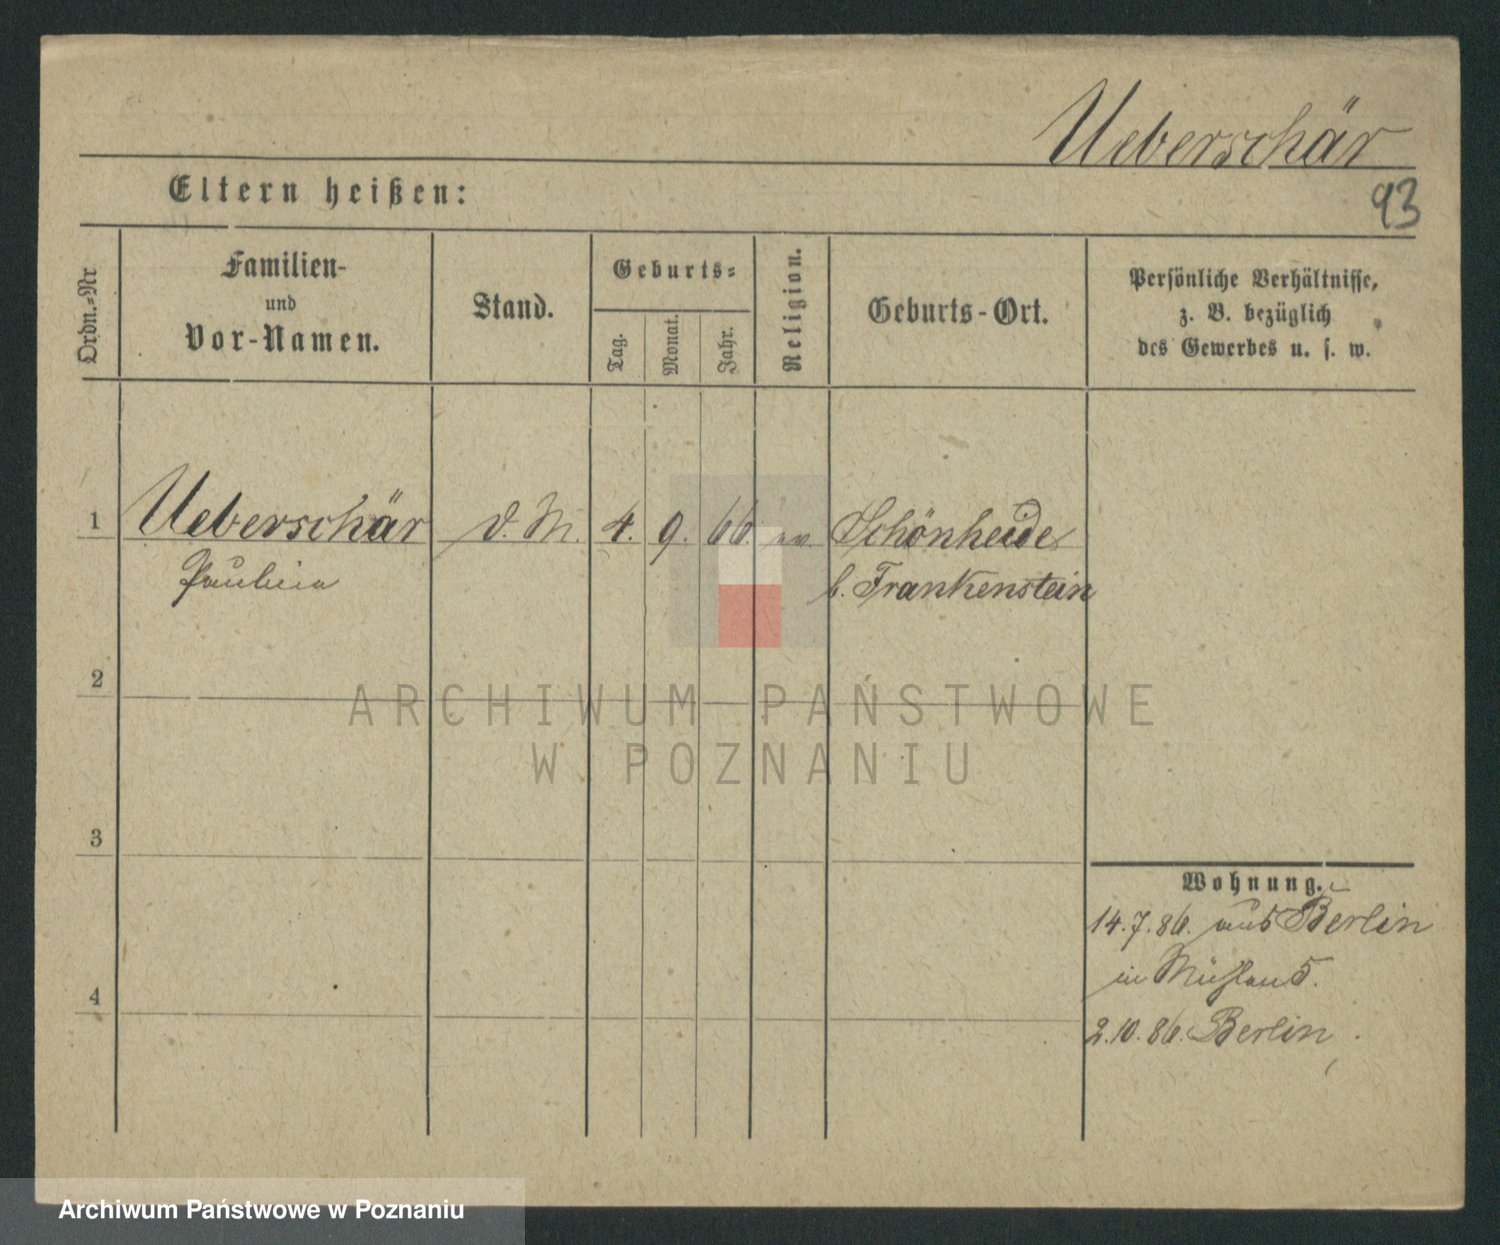 Ueberschär
93
Eltern heißen:
Ordn.=Nr
Familien-
und
Vor-Namen.
Stand.
Geburts=
Tag.
Monat.
Jahr.
Religion.
Geburts-Ort.
Persönliche Verhältnisse,
z. B. bezüglich
des Gewerbes u. s. w.
1 Ueberschär d. M. 4. 9. 66. ev. Schönheide
b. Frankenstein
2
ARCHIWUM PAŃSTWOWE
W POZNANIU
3
Wohnung.
14.7.86. aus Berlin
in 5.
4
2.10.86. Berlin
Archiwum Państwowe w Poznaniu